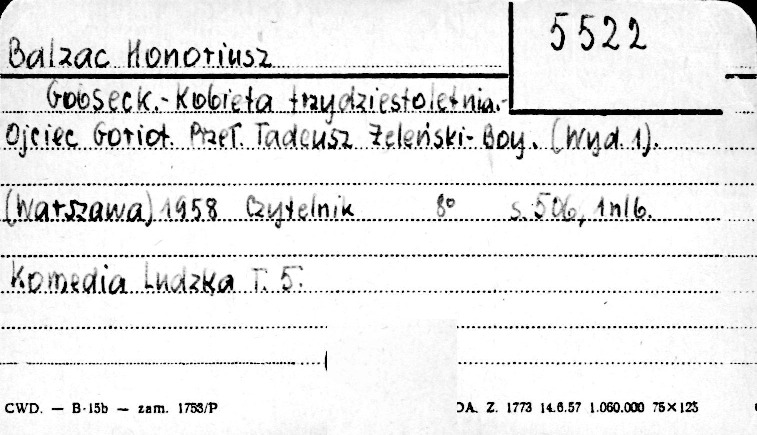 5522
Balzac Honoriusz
Gobseck.- Kobieta trzydziestoletnia.-
Ojciec Goriot. Przeł. Tadeusz Żeleński-Boy. (Wyd. 1).
(Warszawa) 1958 Czytelnik 8° s. 506, 1 nlb.
Komedia Ludzka T. 5.
CWD. — B-15b — zam. 1753/P DA. Z. 1773 14.6.57 1.060.000 75×125